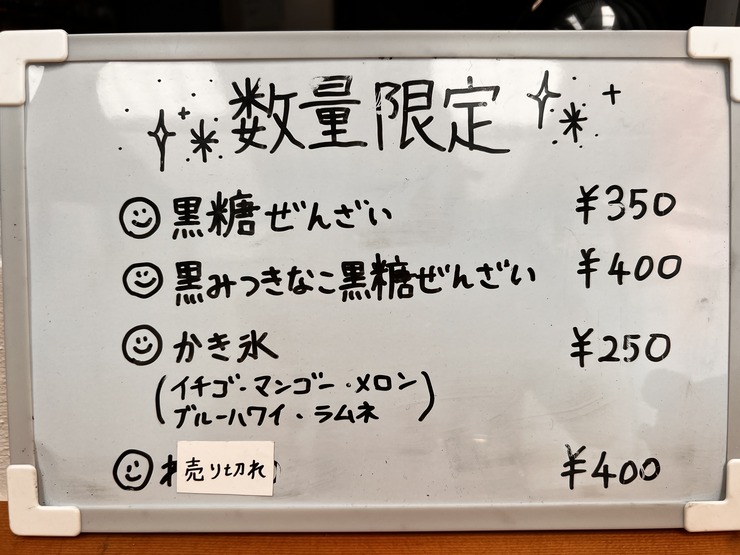 数量限定
黒糖ぜんざい ¥350
黒みつきなこ黒糖ぜんざい ¥400
かき氷 ¥250
(イチゴ・マンゴー・メロン
ブルーハワイ・ラムネ)
売り切れ ¥400